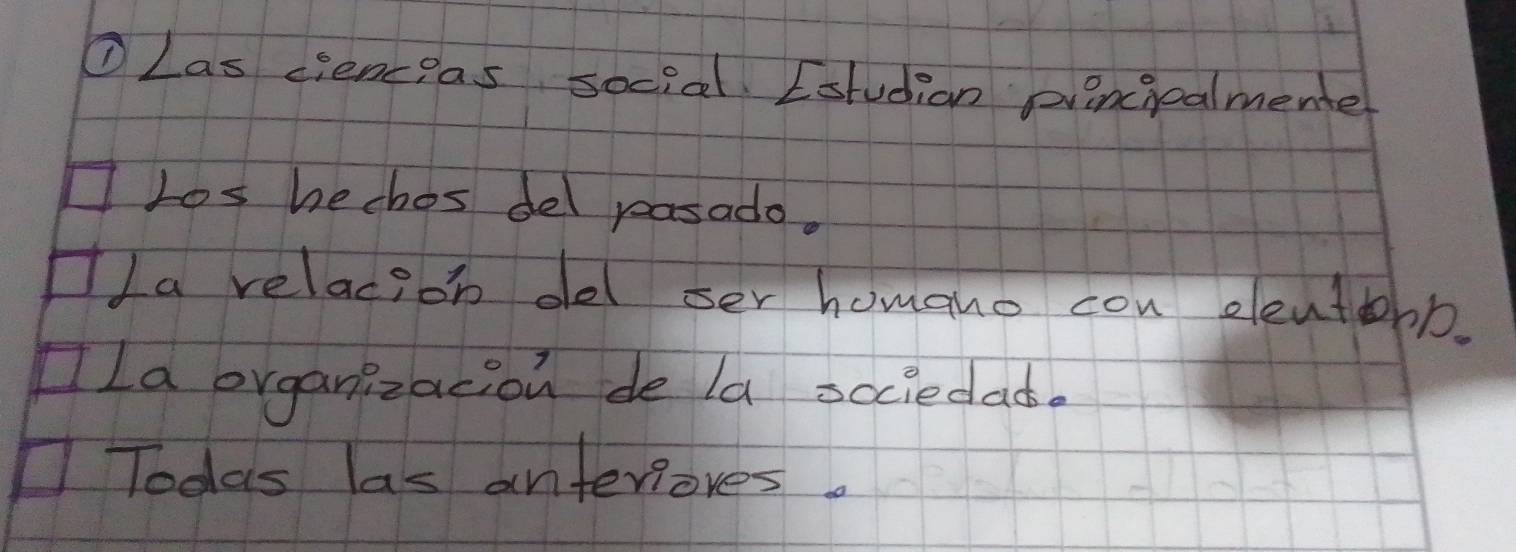 ① Las ciencias social Estudian principalmente
Los hechos del pasado.
La relación del ser humano con
La organización de la sociedad.
Todas las anteriores.